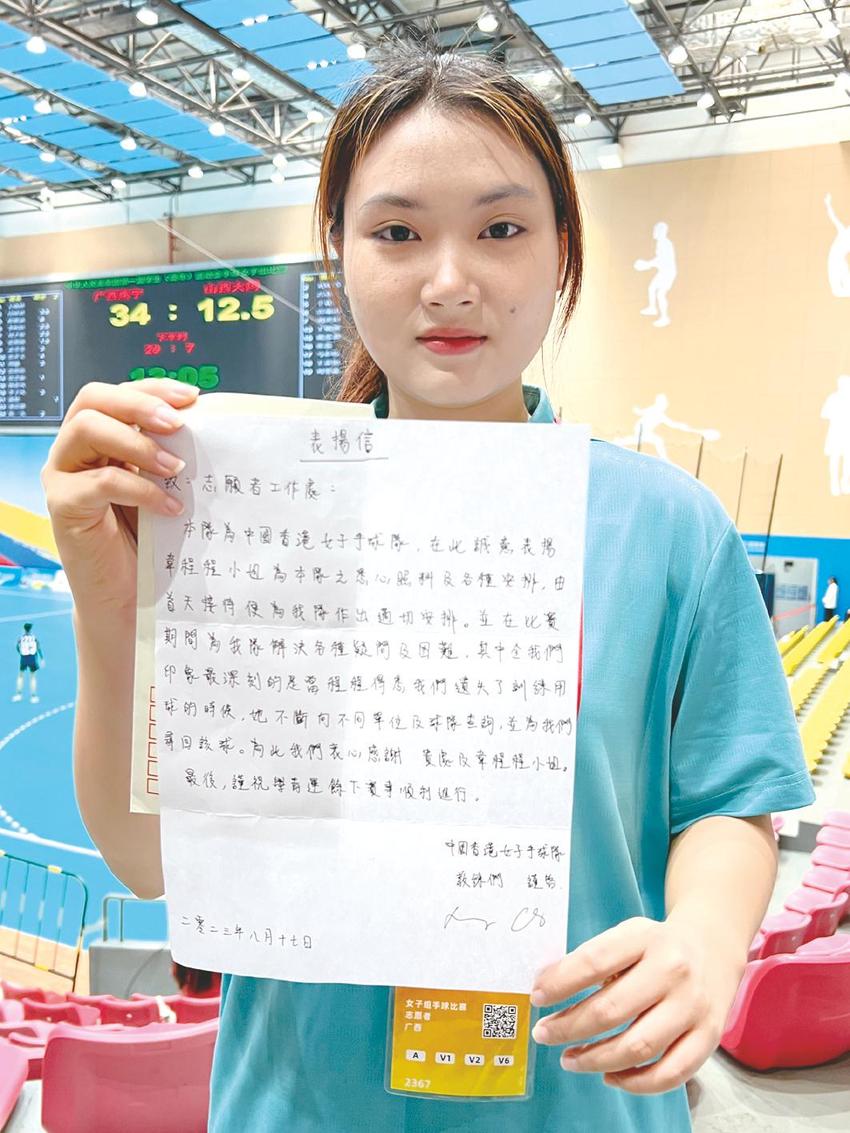 34 : 12.5
20 : 7
12:05
表揚信
致：志願者工作處：
本隊為中國香港女子手球隊，在此誠意表揚
韋程程小姐為本隊之悉心照料及各種安排，由
首天接待便為我隊作出適切安排。並在比賽
期間為我隊解決各種疑問及困難，其中令我們
印象最深刻的是當程程得悉我們遺失了訓練用
球的時候，她不斷向不同單位及球隊查詢，並為我們
尋回該球。為此我們衷心感謝 貴處及韋程程小姐。
最後，謹祝學青運餘下賽事順利進行。
中國香港女子手球隊
教練們 謹啟
二零二三年八月十七日
女子组手球比赛
志愿者
广西
A V1 V2 V6
2367